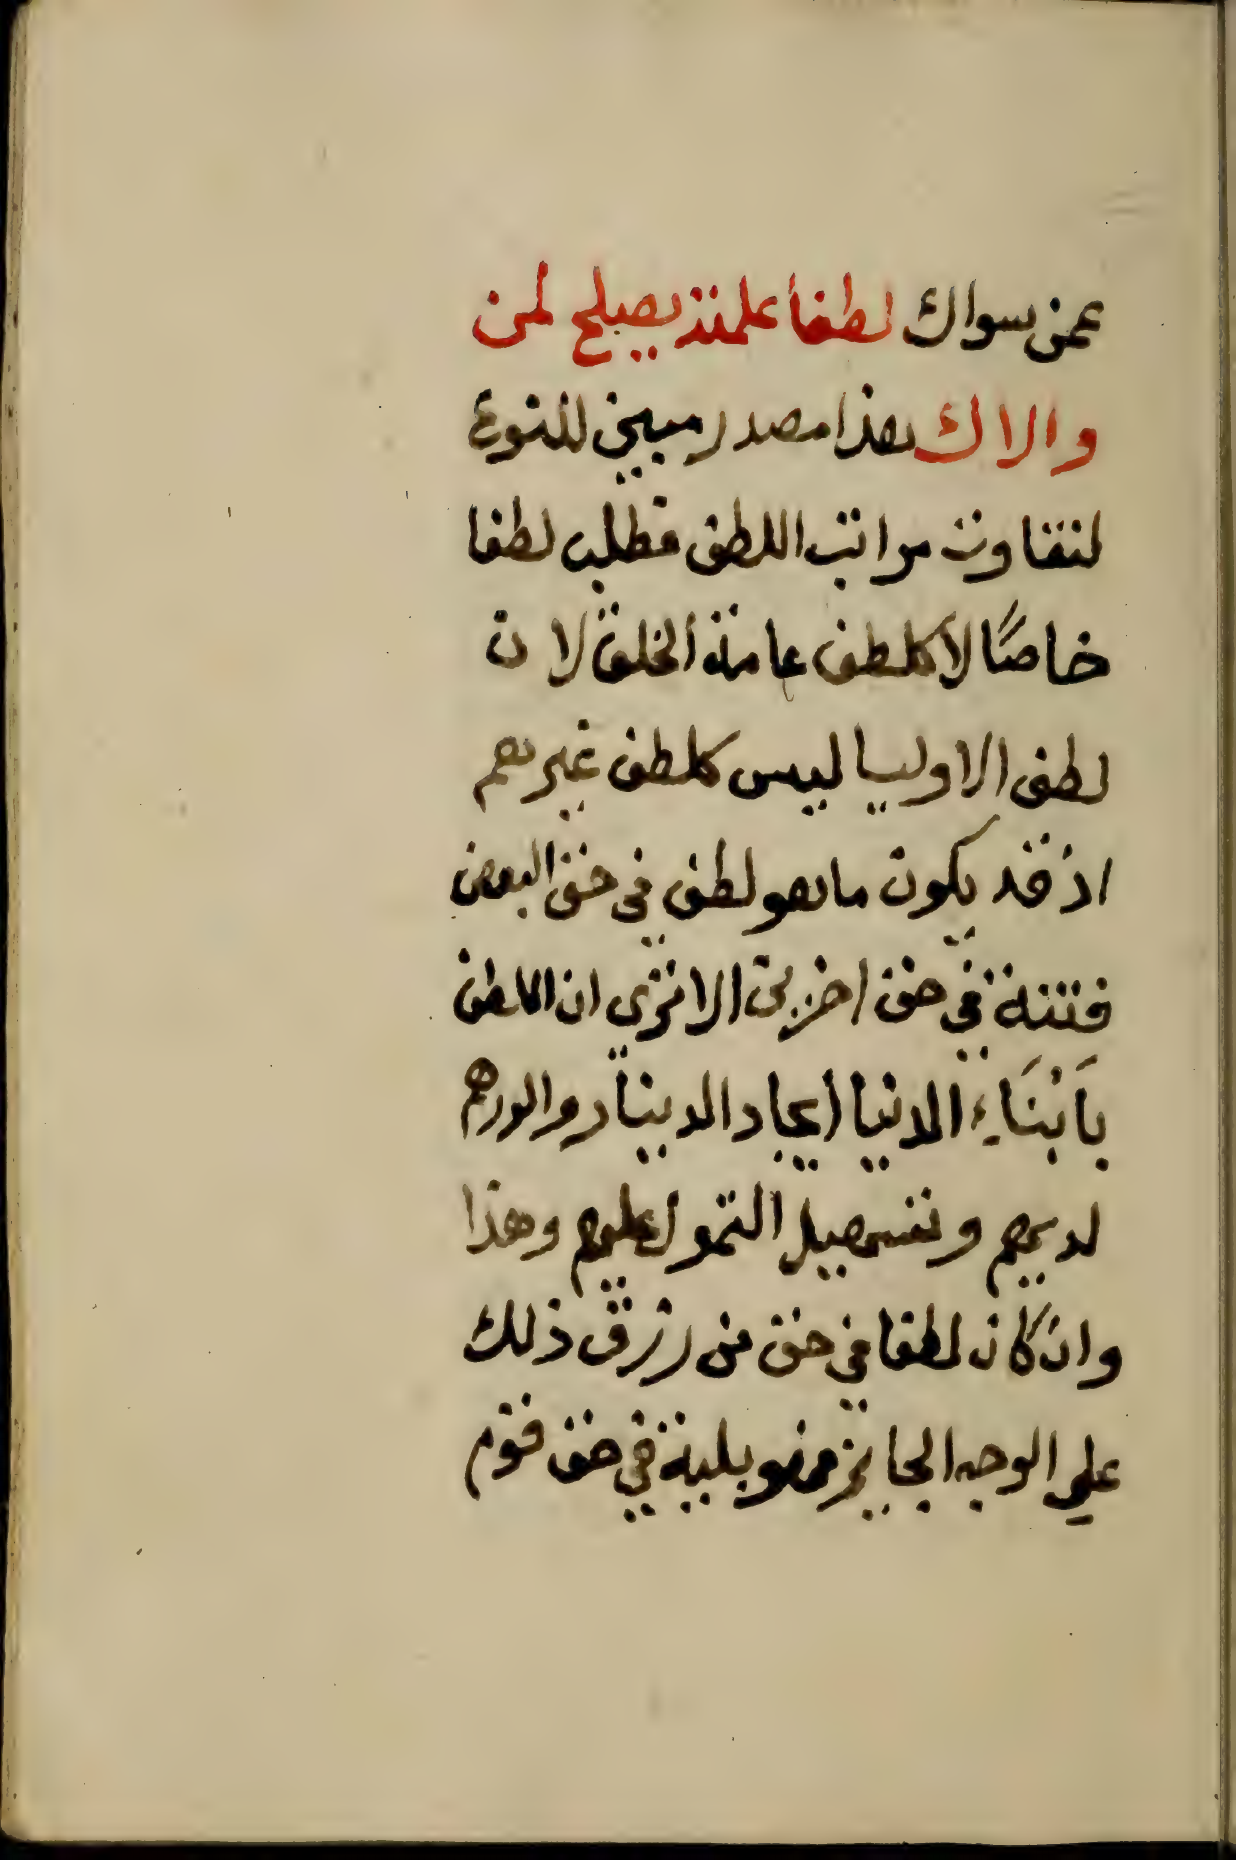 عمن سواك لطفا علمته يصلح لمن
والاك هذا مصدر مبين للنوع
لتفاوت مراتب اللطف فطلب لطفا
خاصًا لا كلطف عامة الخلق لان
لطف الاوليا ليس كلطف غيرهم
اذ قد يكون ما هو لطف في حق البعض
فتنة في حق اخرين الا ترى ان اللطف
بأبْنَاءِ الدنيا إيجاد الدينار والدرهم
لديهم وتسهيل التمول عليهم وهذا
وان كان لطفا في حق من رزق ذلك
على الوجه الجايز فهو بلية في حق قوم